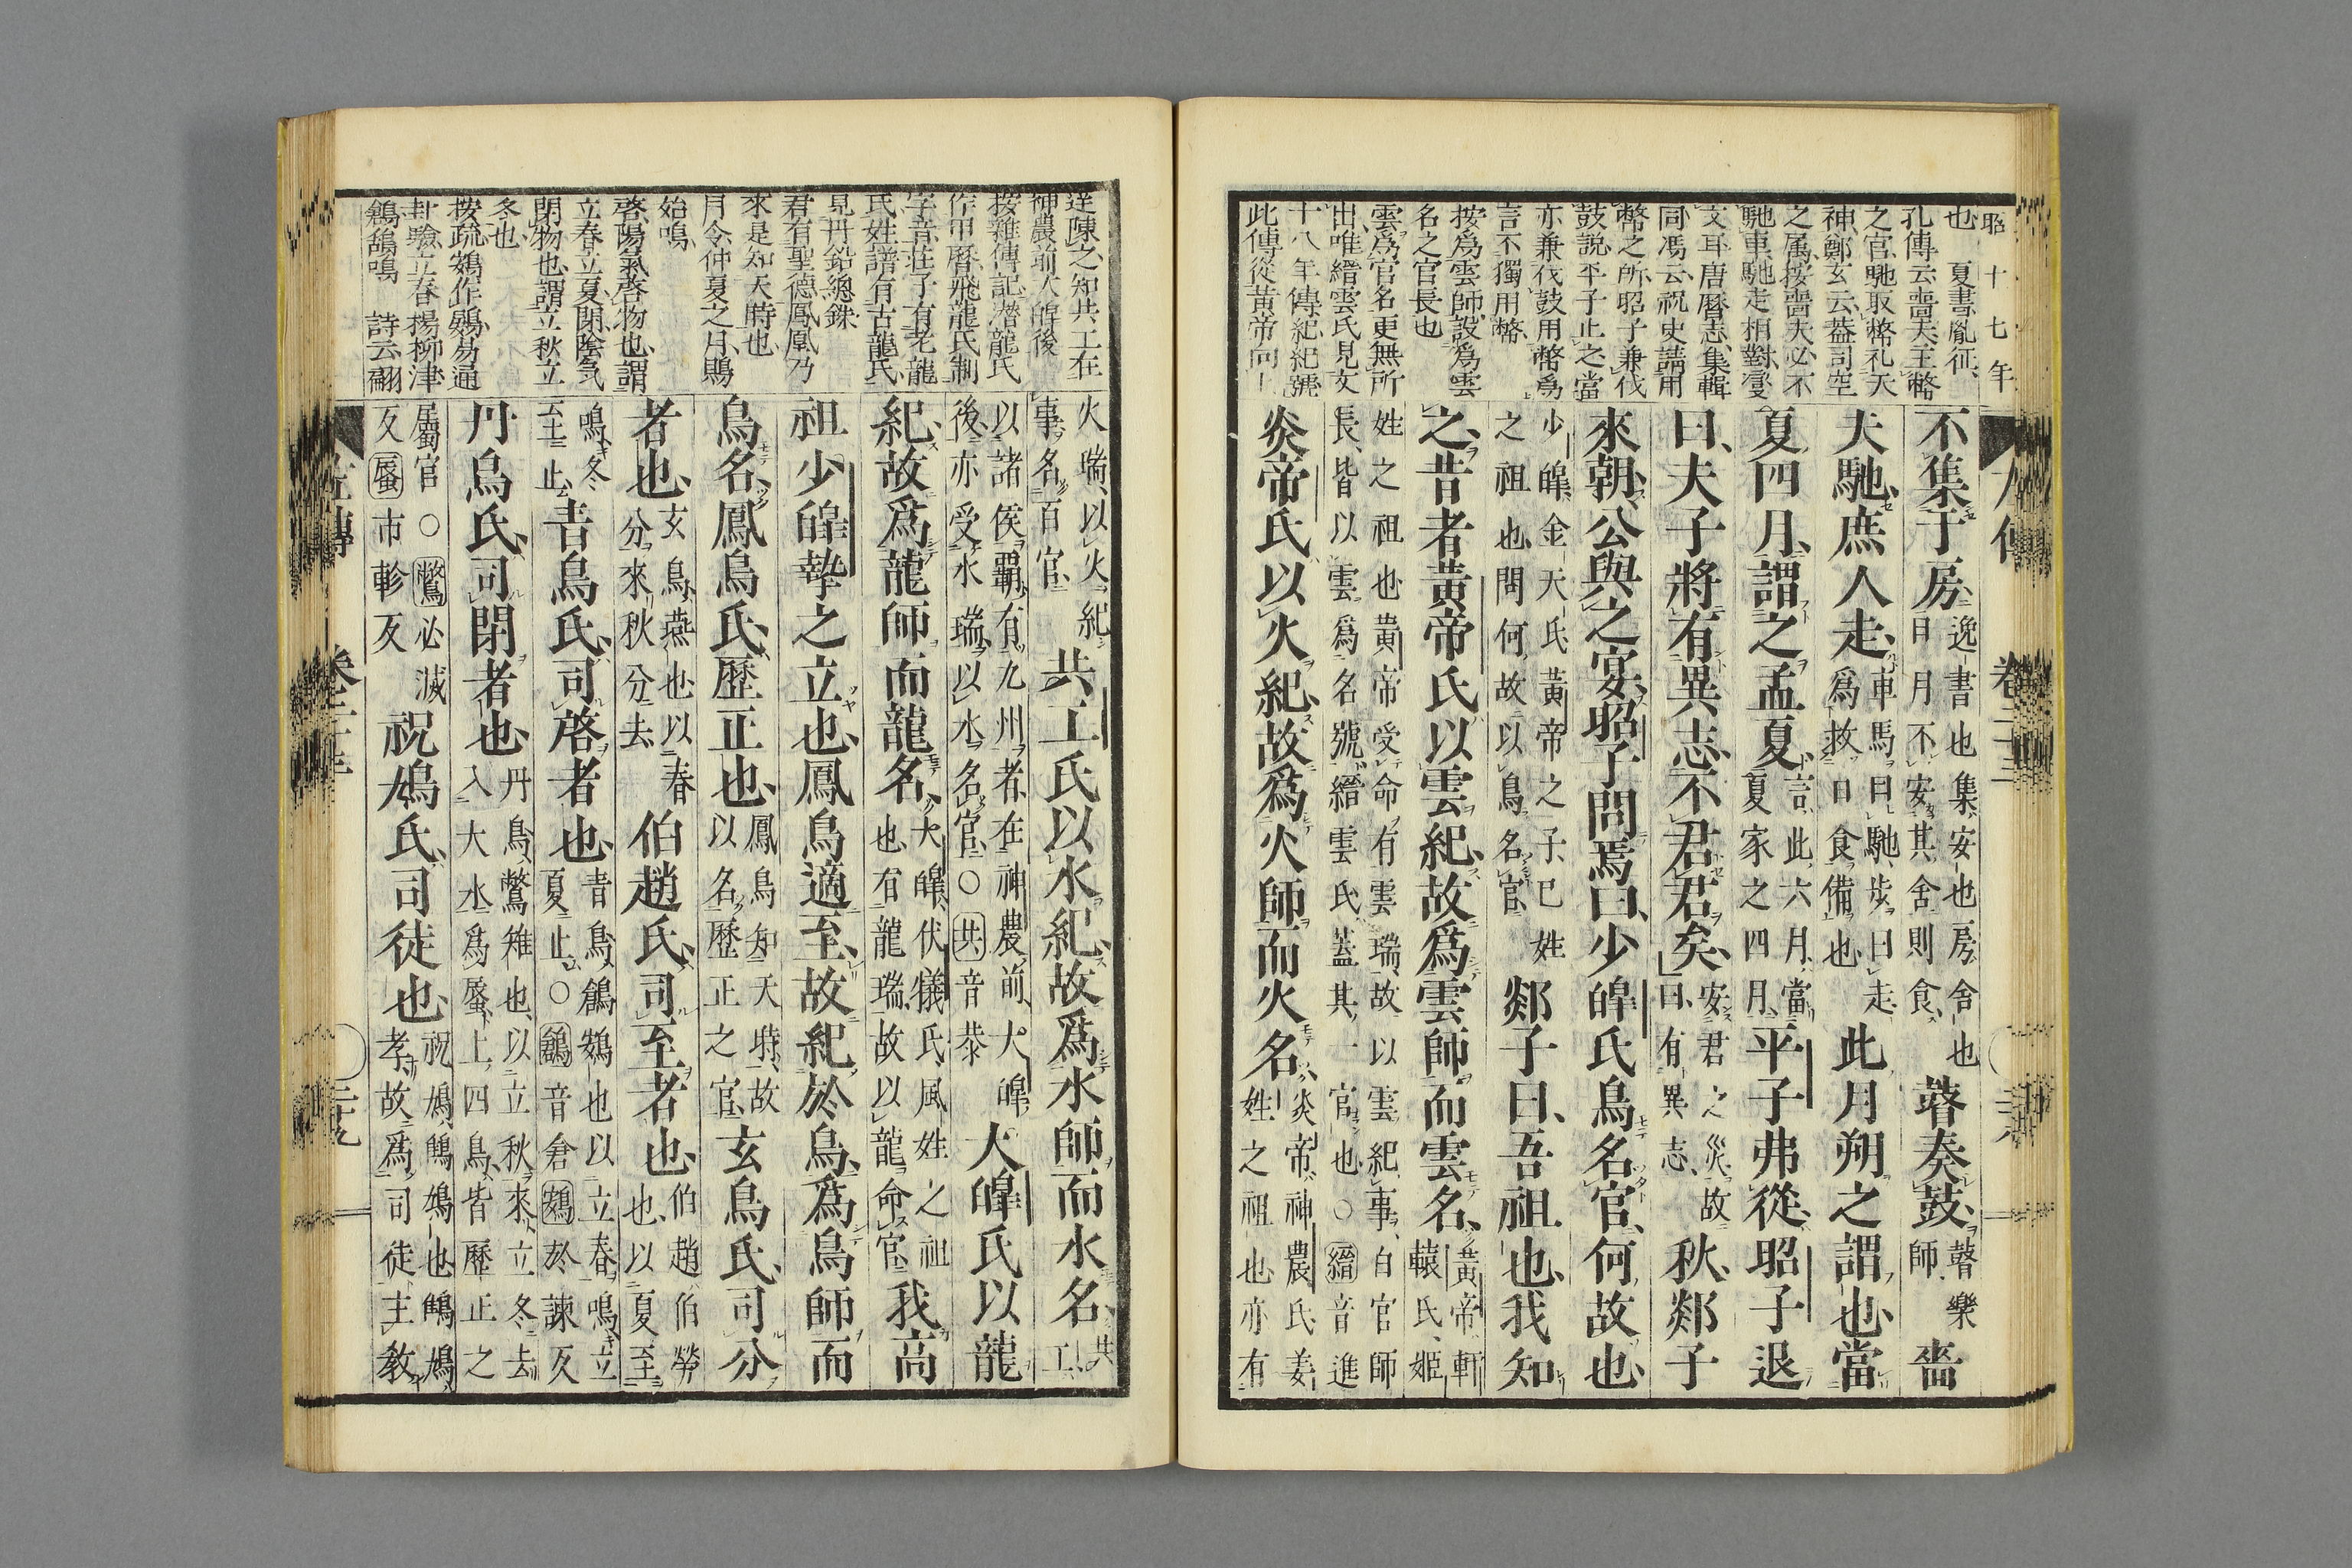 昭十七年
也 夏書胤征
孔傳云嗇夫主幣
之官馳取幣礼天
神鄭玄云蓋司空
之属按嗇夫必不
馳車馳走相對變
文耳唐曆志集輯
同馮云祝史請用
幣之所昭子兼伐
鼓説平子止之當
亦兼伐鼓用幣爲
言不獨用幣
按爲雲師設爲雲
名之官長也
雲爲官名更無所
出唯縉雲氏見文
十八年傳紀紀號
此傳從黄帝向上
不集于房逸書也集安也房舍也日月不安其舍則食瞽奏鼓瞽樂師嗇
夫馳庶人走車馬曰馳步曰走爲救日食備也此月朔之謂也當
夏四月謂之孟夏言此六月當夏家之四月平子弗從昭子退
曰夫子將有異志不君君矣安君之災故曰有異志秋郯子
來朝公與之宴昭子問焉曰少皥氏鳥名官何故也
少皥金天氏黄帝之子己姓之祖也問何故以鳥名官郯子曰吾祖也我知
之昔者黄帝氏以雲紀故爲雲師而雲名黄帝軒轅氏姬
姓之祖也黄帝受命有雲瑞故以雲紀事百官師長皆以雲爲名號縉雲氏蓋其一官也○縉音進
炎帝氏以火紀故爲火師而火名炎帝神農氏姜姓之祖也亦有
逆陳之知共工在
神農前大皥後
按雜傳記潛龍氏
作甲曆飛龍氏制
字音莊子有老龍
氏姓譜有古龍氏
見丹鉛總錄
君有聖德鳳凰乃
來是知天時也
月令仲夏之月鵙
始鳴
啓陽氣啓物也謂
立春立夏閉陰気
閉物也謂立秋立
冬也
按疏鴳作鷃易通
卦驗立春楊柳津
鶬鴰鳴 詩云翩
火瑞以火紀事名百官共工氏以水紀故爲水師而水名共工
以諸侯霸有九州者在神農前大皥後亦受水瑞以水名官○共音恭大皥氏以龍
紀故爲龍師而龍名大皥伏犠氏風姓之祖也有龍瑞故以龍命官我高
祖少皥摯之立也鳳鳥適至故紀於鳥爲鳥師而
鳥名鳳鳥氏歷正也鳳鳥知天時故以名歷正之官玄鳥氏司分
者也玄鳥燕也以春分來秋分去伯趙氏司至者也伯趙伯勞也以夏至
鳴冬至止青鳥氏司啓者也青鳥鶬鴳也以立春鳴立夏止○鶬音倉鴳於諫反
丹鳥氏司閉者也丹鳥鷩雉也以立秋來立冬去入大水爲蜃上四鳥皆歷正之
屬官○鷩必滅反蜃市軫反祝鳩氏司徒也祝鳩鷦鳩也鷦鳩孝故爲司徒主教
左傳 卷二十三 二十九